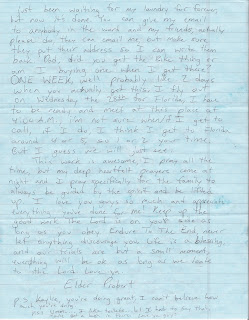 just been waiting for my laundry for forever
but now its done. You can give my email
to anybody in the ward and my friends, actually
please do. They can email me but make sure
they put their address so I can write them
back. Dad, did you get the bike thing or
am I buying one when I get there?
ONE WEEK, well probably like 2 days
when you actually get this, I fly out
on Wednesday the 15th for Florida, I have
to be ready and next at the place at
4:00 AM. I'm not sure when/if I get to
call, if I do, I think I get to Florida
around 4 or 5 so 1 or 2 your time.
But I guess we will just see.
This week is awesome, I pray all the
time, but my deep heartfelt prayers come at
night and I pray specifically for the family to
always be guided by the spirit and be lifted
up. I love you always so much and appreciate
everything you've done for me. Keep up the
good work. The Lord is on your side as
long as you obey. Endure To The End, never
let anything discourage you. Life is a blessing,
and our trials are but a small moment,
everything will be ok as long as we look
to the Lord. Love ya
Elder Probert
P.S. Kaylie, you're doing great, I can't believe how
much you're doing